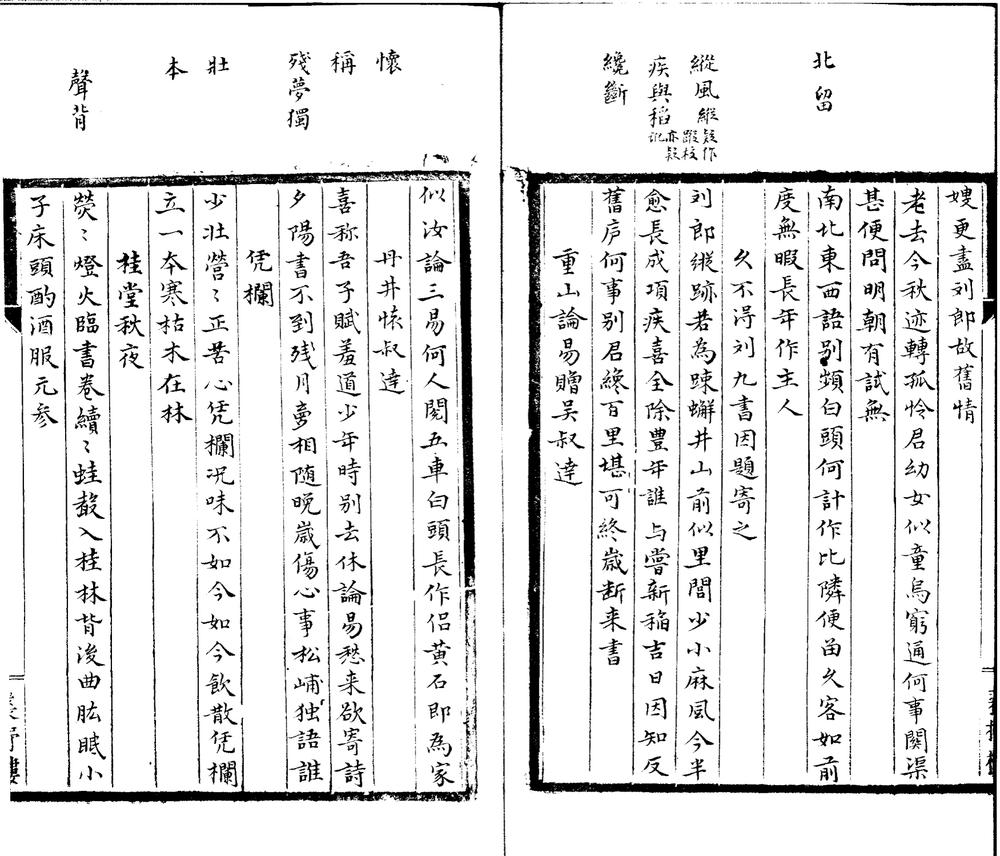 北留
縱風縱疑作蹤校
疾與稻記亦疑
纔斷
嫂更盡刘郎故舊情
老去今秋迹轉孤怜君幼女似童烏窮通何事関渠
甚便問明朝有試無
南北東西語别頻白頭何計作比隣便畄久客如前
度無暇長年作主人
久不淂刘九書因題寄之
刘郎縱跡若為踈蠏井山前似里閭少小麻凨今半
愈長成項疾喜全除豊年誰与嘗新稲吉日因知反
舊庐何事别君纔百里堪可終嵗断来書
重山論昜贈吴叔逹
懷
稱
殘夢獨
壯
本
聲背
似汝論三昜何人閱五車白頭長作侣黄石即為家
丹井懐叔逹
喜称吾子賦羞道少年時别去休論昜愁来欲寄詩
夕陽書不到残月夣相随晩嵗傷心事松峬独語誰
凭欄
少壮營〻正苦心凭欄况味不如今如今飲散凭欄
立一夲寒枯木在林
桂堂秋夜
熒〻燈火臨書卷續〻蛙嗀入桂林背後曲肱眠小
子床頭酌酒服元参